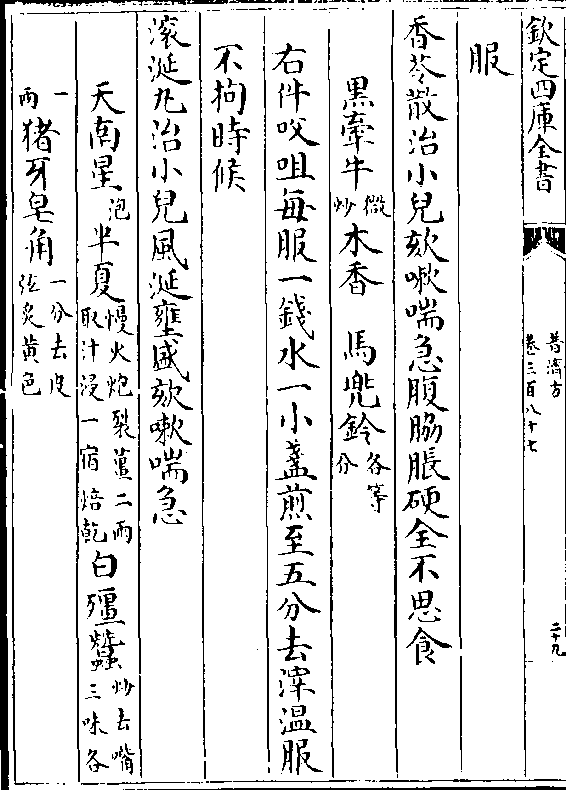 欽定四庫全書
普濟方
卷三百八十七
二十九
服
香苓散治小兒欬嗽喘急腹脇脹硬全不思食
黒牽牛微炒木香 馬兜鈴各等分
右件㕮咀每服一錢水一小盞煎至五分去滓温服
不拘時候
滚涎丸治小兒風涎壅盛欬嗽喘急
天南星泡半夏慢火炮裂薑二兩取汁浸一宿焙乾白殭蠶炒去嘴三味各
一兩猪牙皂角一分去皮弦炙黄色